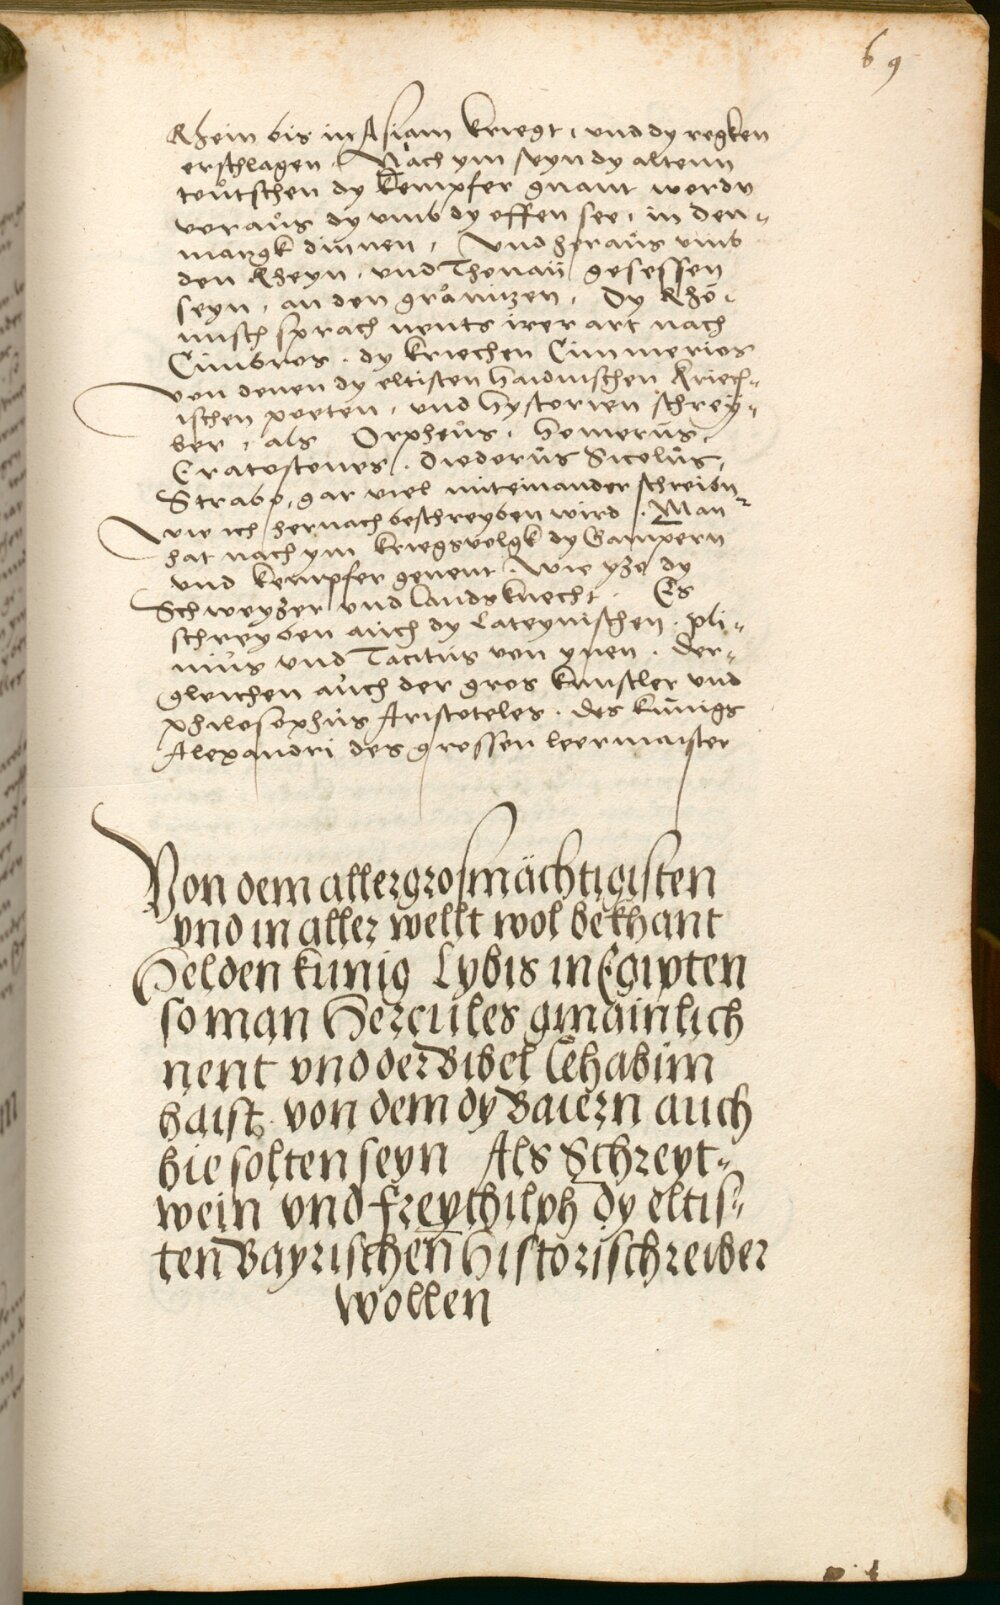 69
Rhein bis in Asiam kriegt, und dy regken
erschlagen. Nach ym seyn dy altenn
teůtschen dy kempfer gnant wordn
voraůs dy umb dy offen see, in den-
margk dinnen, und heraůs umb
den Rheyn, und Thonaü gesessen
seyn, an den gränitzen, Dy Rhö-
misch sprach nents irer art nach
Cimbros. dy kriechen Cimmerios
von denen dy eltisten haidnischen kriech-
ischen poeten, und hystorien schrey-
ber, als Orpheůs, Homerůs,
Eratostenes. Diodorůs Sicolůs,
Strabo, gar viel miteinander schreibn
wie ich hernach beschreyben wird. Man
hat nach ym kriegsvolgk dy Gampern
und kempfer genent. wie yze dy
Schweyzer und landsknecht. Es
schreyben aůch dy Lateynischen. pli-
niůs und Tacitůs von ynen. der-
gleichen aůch der gros kunstler und
philosophůs Aristoteles. des künigs
Alexandri des grossen leermaister
Von dem allergrosmächtigisten
und in aller wellt wol bekhant
Helden künig Lybis in Egipten
so man Hercules gmainlich
nent und der Bibel Lehabim
haist. von dem dy Baiern auch
hie solten seyn Als Schreyt-
wein und freythilph dy eltis-
ten Bayrischen Historischreiber
wollen